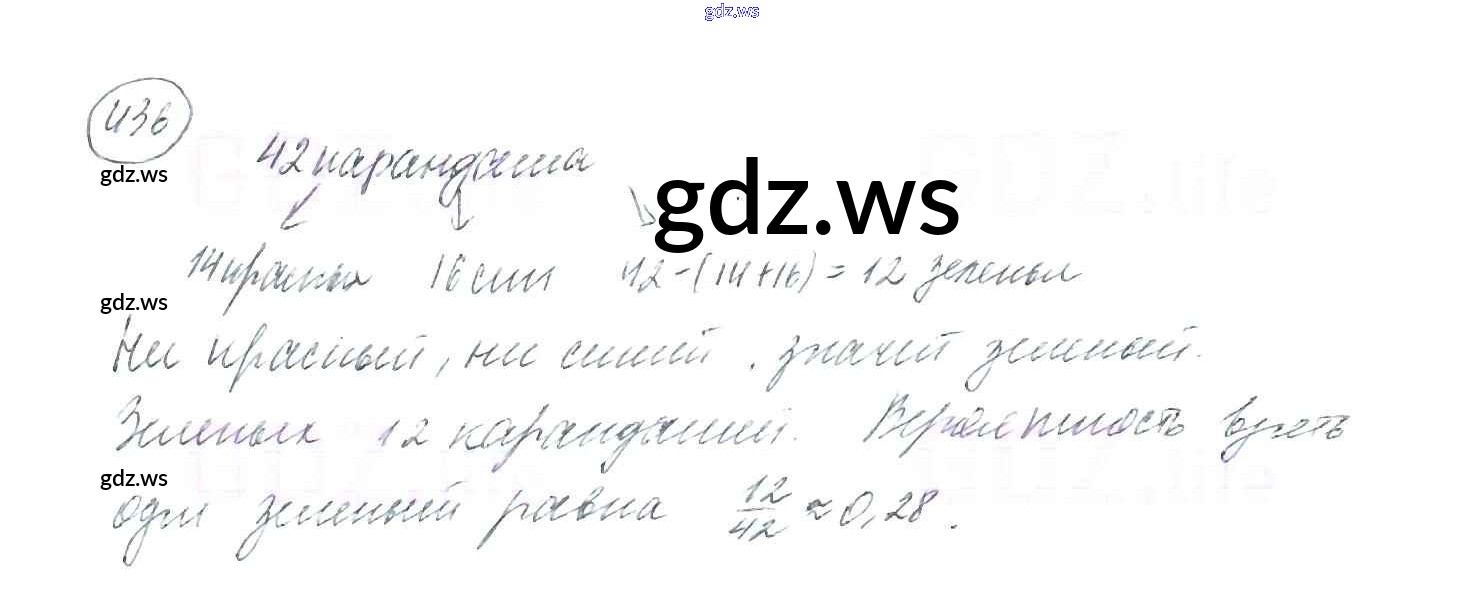 gdz.ws
436
gdz.ws
42 карандаша
gdz.ws
14 красных 16 син 42-(14+16)=12 зеленых
gdz.ws
Ни красный, ни синий, значит зеленый.
Зеленых 12 карандашей. Вероятность взять
gdz.ws
один зеленый равна 12/42 ≈ 0,28.